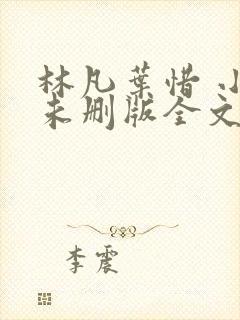 林凡叶惜小
未删版全文
李震